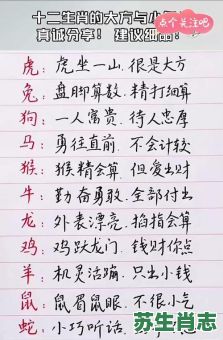 十二生肖的大方与小气
点个关注吧
真诚分享！建议细品！
虎：虎坐一山，很是大方
兔：盘脚算数，精打细算
狗：一人富贵，待人忠厚
马：勇往直前，不会计较
猴：猴精会算，但爱出财
牛：勤奋勇敢，全部付出
龙：外表漂亮，掐指会算
鸡：鸡跃龙门，钱财你点
羊：机灵活蹦，只出小钱
鼠：鼠眉鼠眼，不很小气
蛇：小巧听话，
苏生肖志